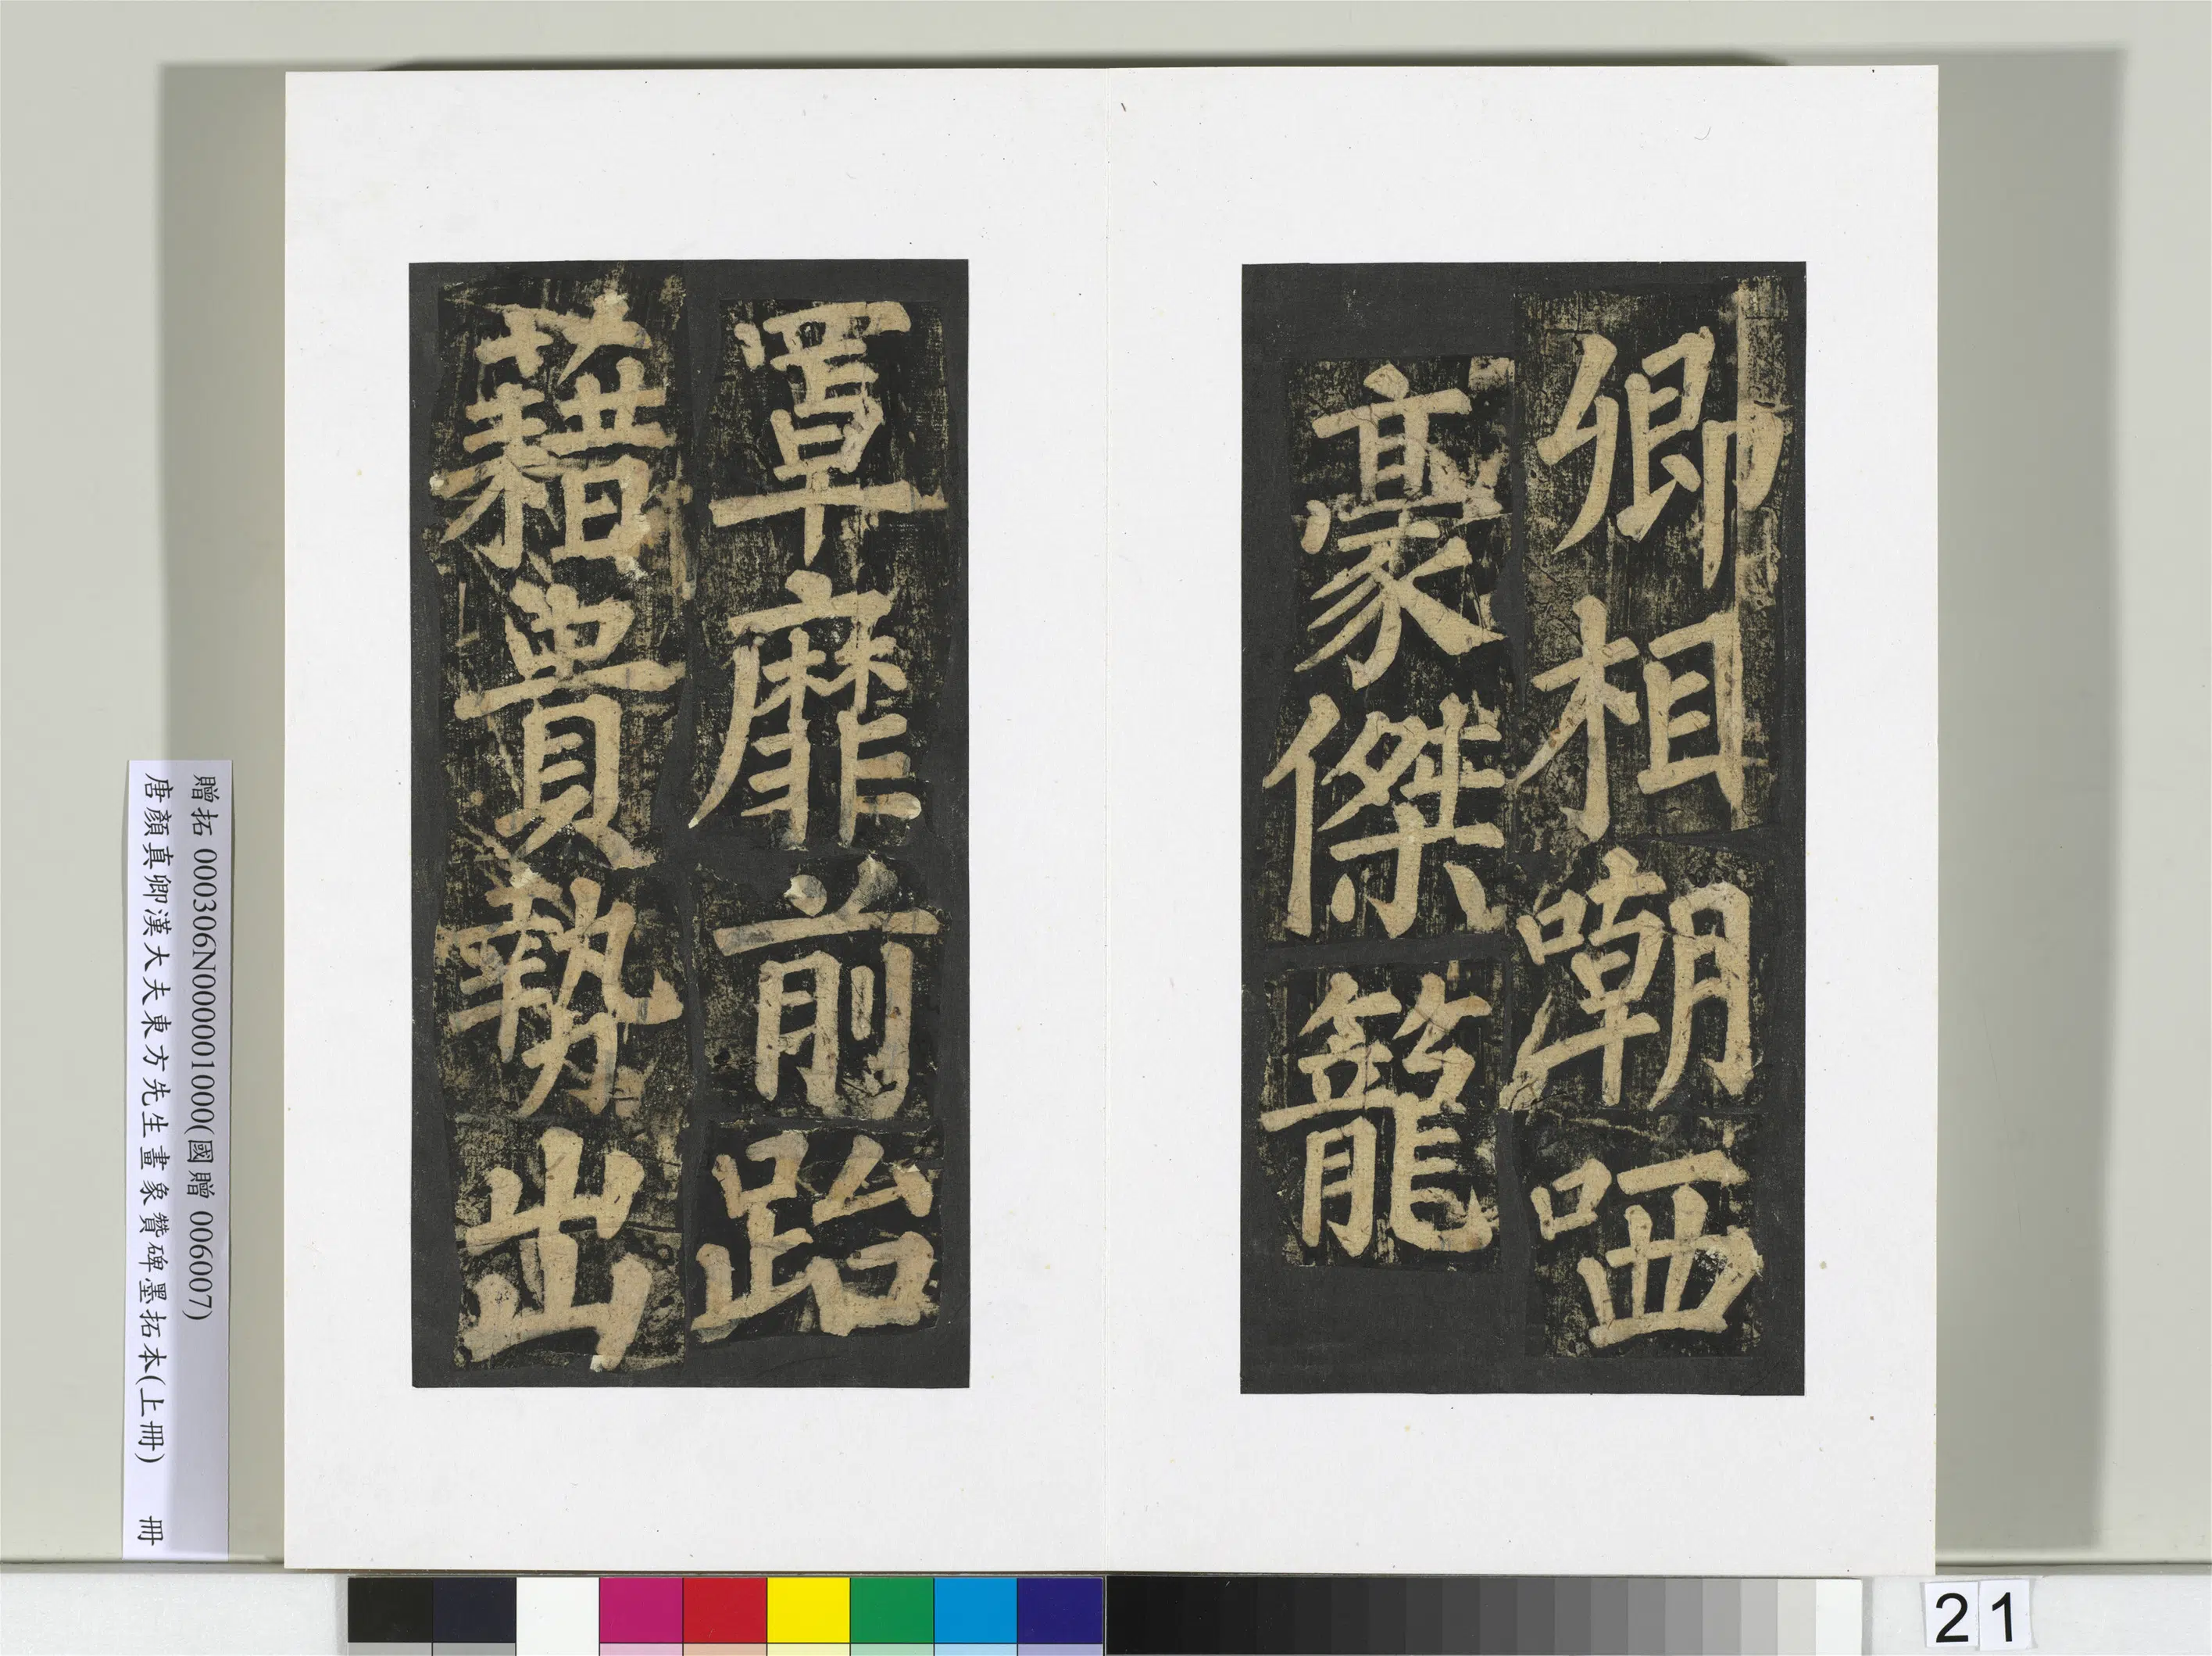 卿相嘲哂
豪傑籠
罩靡前跆
藉貴勢出
贈拓 000306N000001000(國贈 006007)
唐顏真卿漢大夫東方先生畫象贊碑墨拓本(上冊) 冊
21